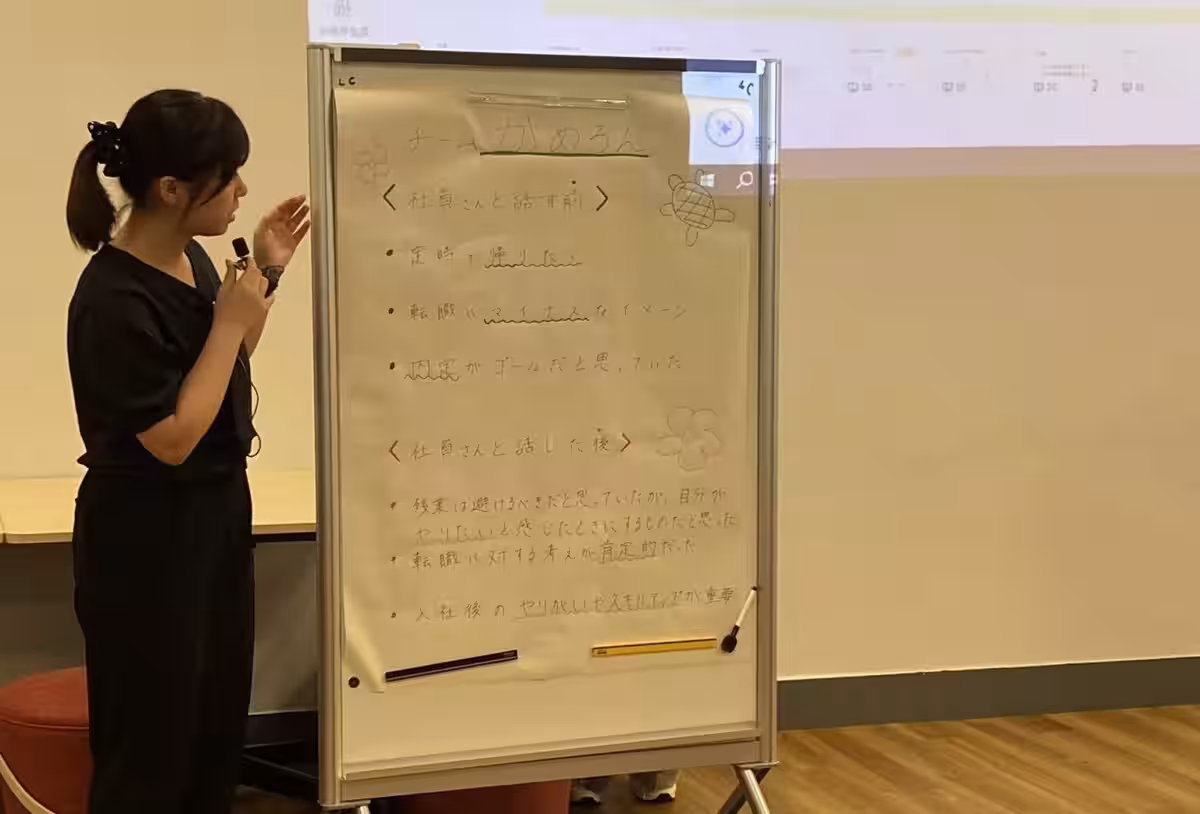 チーム かめろん
〈社員さんと話す前〉
・定時で帰りたい
・転職にマイナスなイメージ
・内定がゴールだと思っていた
〈社員さんと話した後〉
・残業は避けるべきだと思っていたが、自分が
やりたいと感じたときにするものだと思った
・転職に対する考えが肯定的だった
・入社後のやりがいやスキルアップが重要